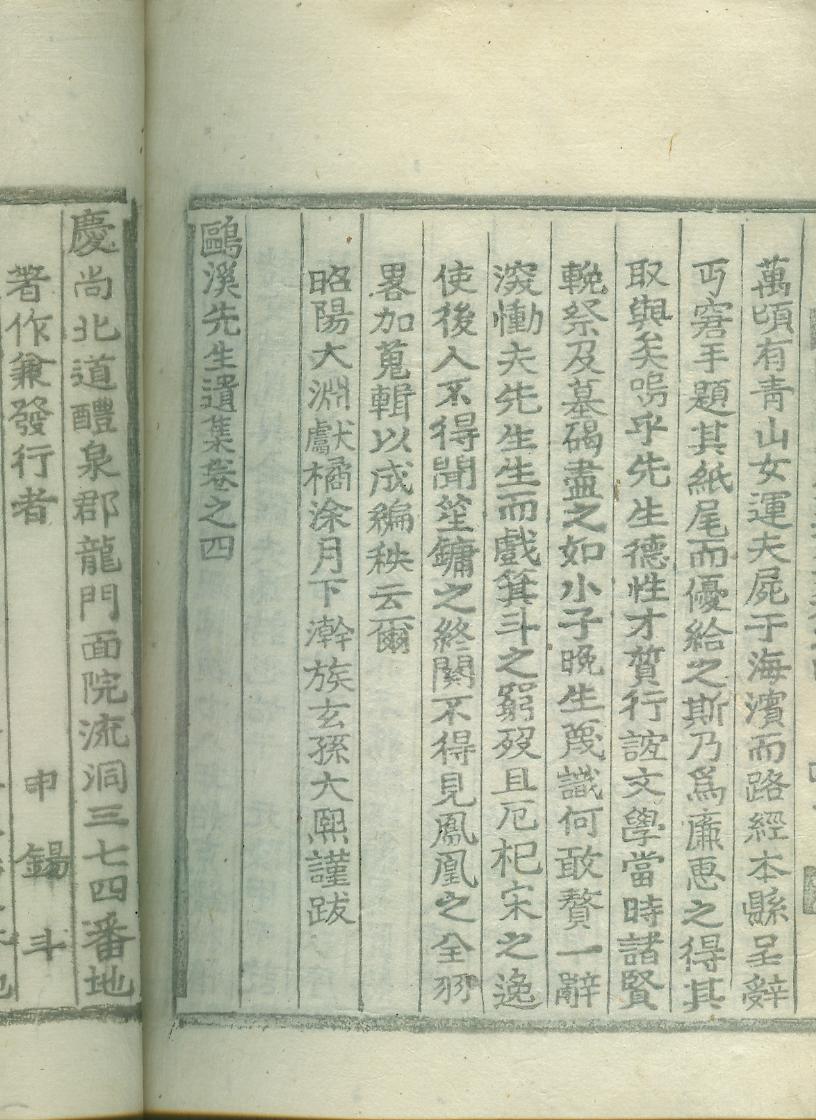 萬頃有靑山女運夫屍于海濱而路經本縣呈辭
丐窘手題其紙尾而優給之斯乃爲廉惠之得其
取與矣嗚乎先生德性才質行誼文學當時諸賢
輓祭及墓碣盡之如小子晩生蔑識何敢贅一辭
深慟夫先生生而戱箕斗之窮歿且厄杞宋之逸
使後人不得聞笙鏞之終闋不得見鳳凰之全羽
畧加蒐輯以成編秩云爾
昭陽大淵獻橘涂月下澣族玄孫大熙謹跋
鷗溪先生遺集卷之四
慶尚北道醴泉郡龍門面院流洞三七四番地
著作兼發行者 申錫斗